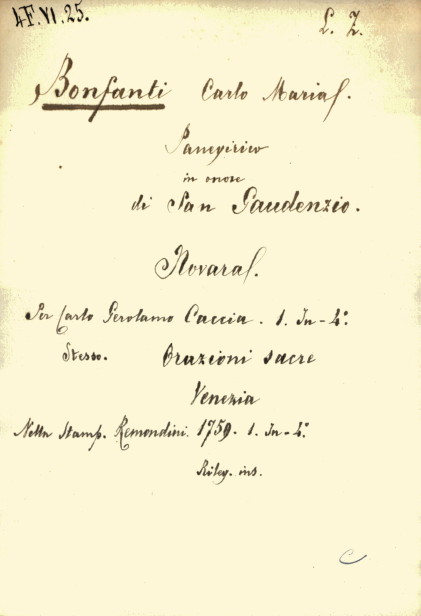 4F.VI.25.
L. Z.
Bonfanti Carlo Maria.
Panegirico
in onore
di San Gaudenzio.
Novara.
Per Carlo Gerolamo Caccia. 1. In-4°
Stesso. Orazioni sacre
Venezia
Nella Stamp. Remondini. 1759. 1. In-4°
Rileg. ins.
C